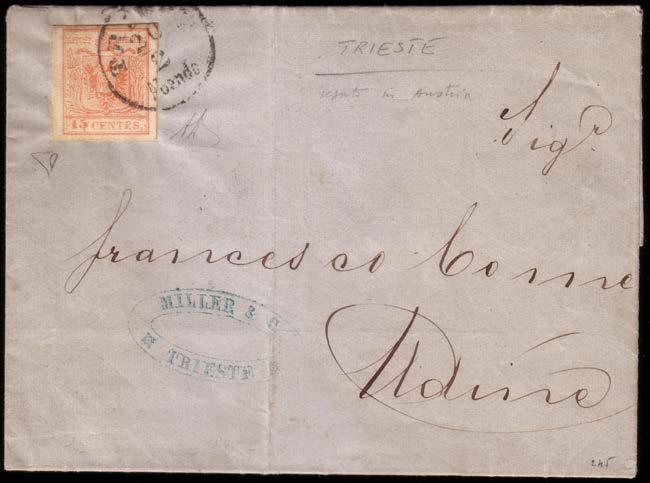 15 CENTES.
TRIESTE
usato in Austria
Sigr.
Francesco
MILLER & C
TRIESTE
Udine